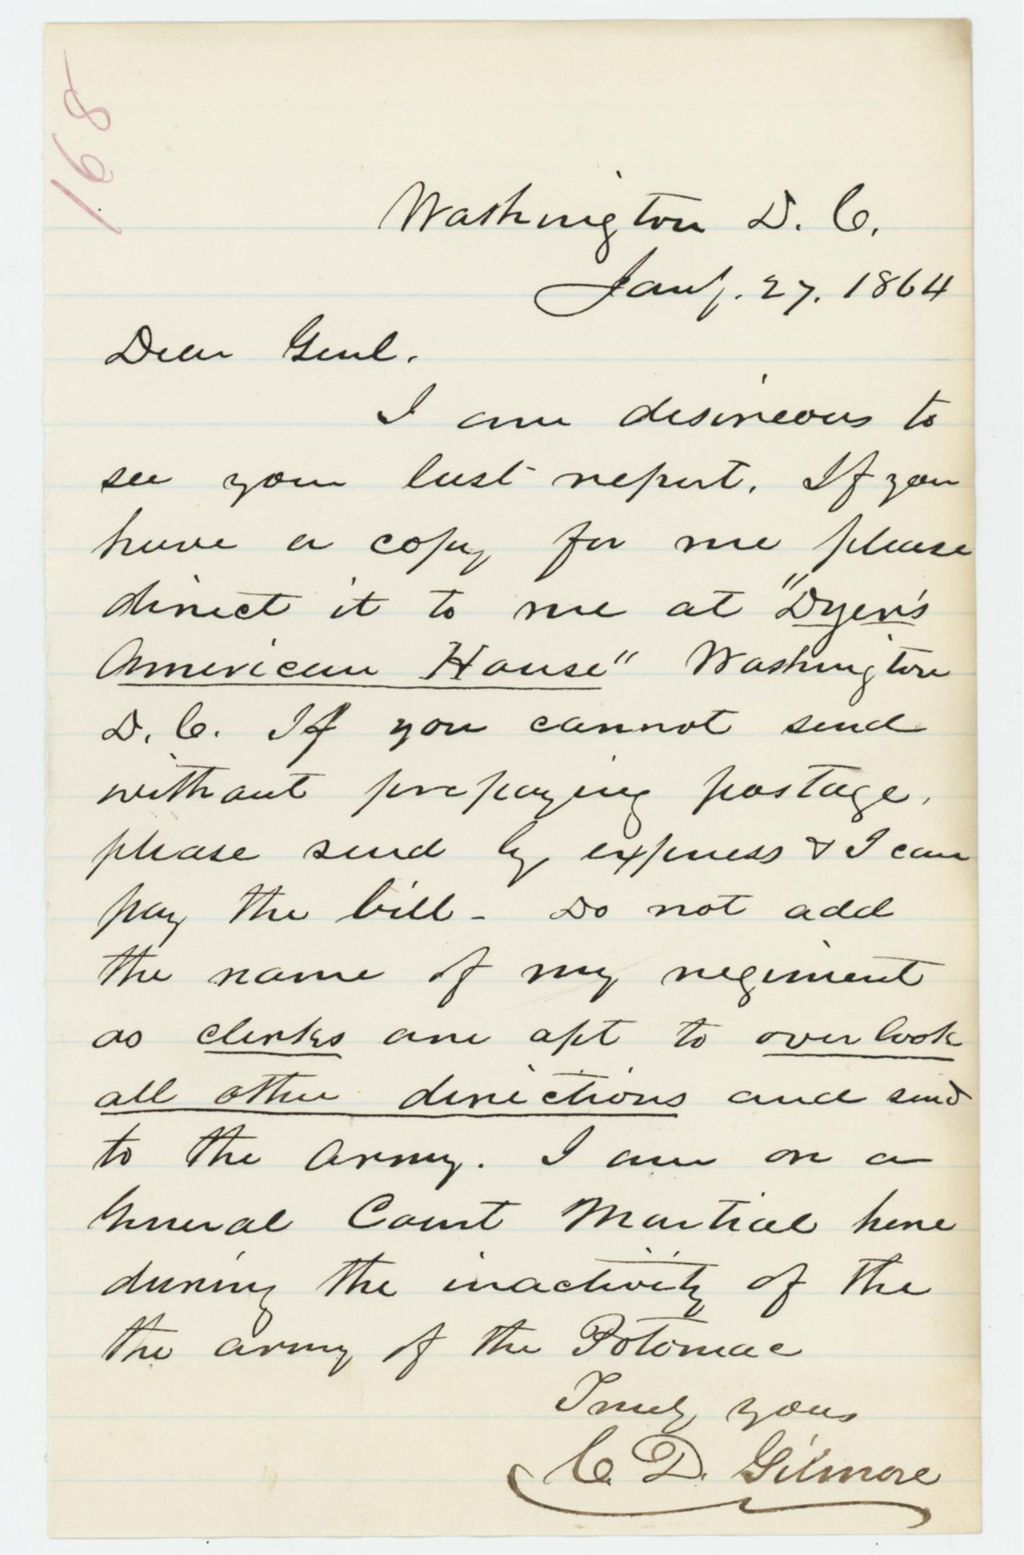 168
Washington D. C.
Jany. 27. 1864
Dear Genl.
I am desireous to
see your last report. If you
have a copy for me please
direct it to me at "Dyer's
American House" Washington
D. C. If you cannot send
without prepaying postage,
please send by express & I can
pay the bill - Do not add
the name of my regiment
as clerks are apt to over look
all other directions and send
to the army. I am on a
General Court Martial here
during the inactivity of the
the army of the Potomac
Truly yours
C. D. Gilmore